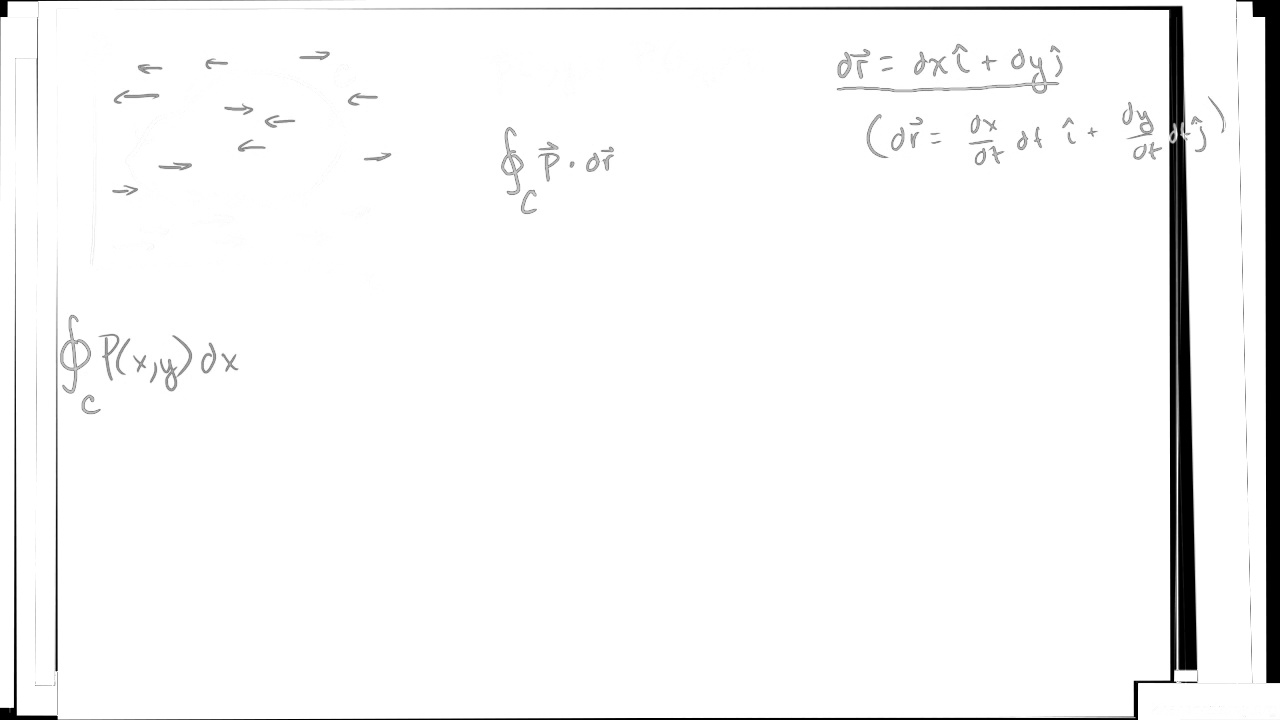 d\vec{r} = dx\hat{i} + dy\hat{j}
(d\vec{r} = \frac{dx}{dt} dt \hat{i} + \frac{dy}{dt} dt \hat{j})
\oint_C \vec{P} \cdot d\vec{r}
\oint_C P(x,y) dx